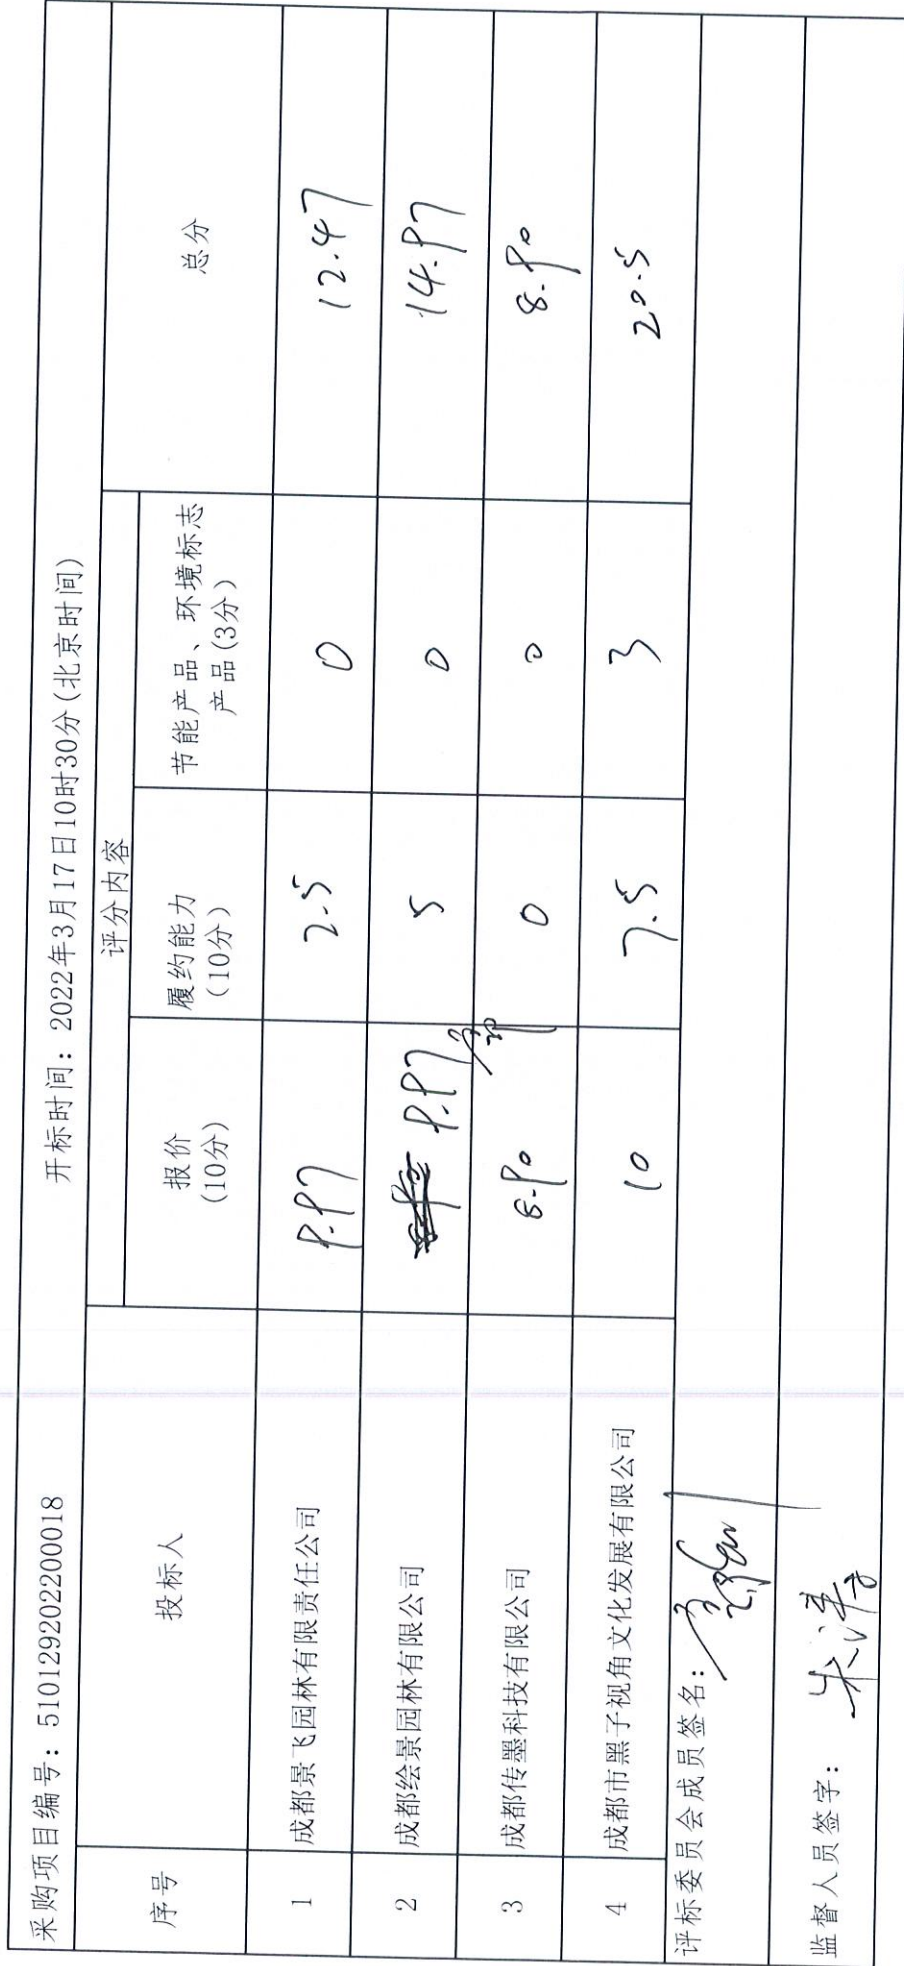 采购项目编号：5101292022200018 开标时间：2022年3月17日10时30分(北京时间)
序号 投标人 评分内容 总分
报价 (10分) 履约能力 (10分) 节能产品、环境标志产品(3分)
1 成都景飞园林有限责任公司 9.97 2.5 0 12.47
2 成都绘景园林有限公司 9.97 5 0 14.97
3 成都传墨科技有限公司 8.90 0 0 8.90
4 成都市黑子视角文化发展有限公司 10 7.5 3 20.5
评标委员会成员签名：
监督人员签字：